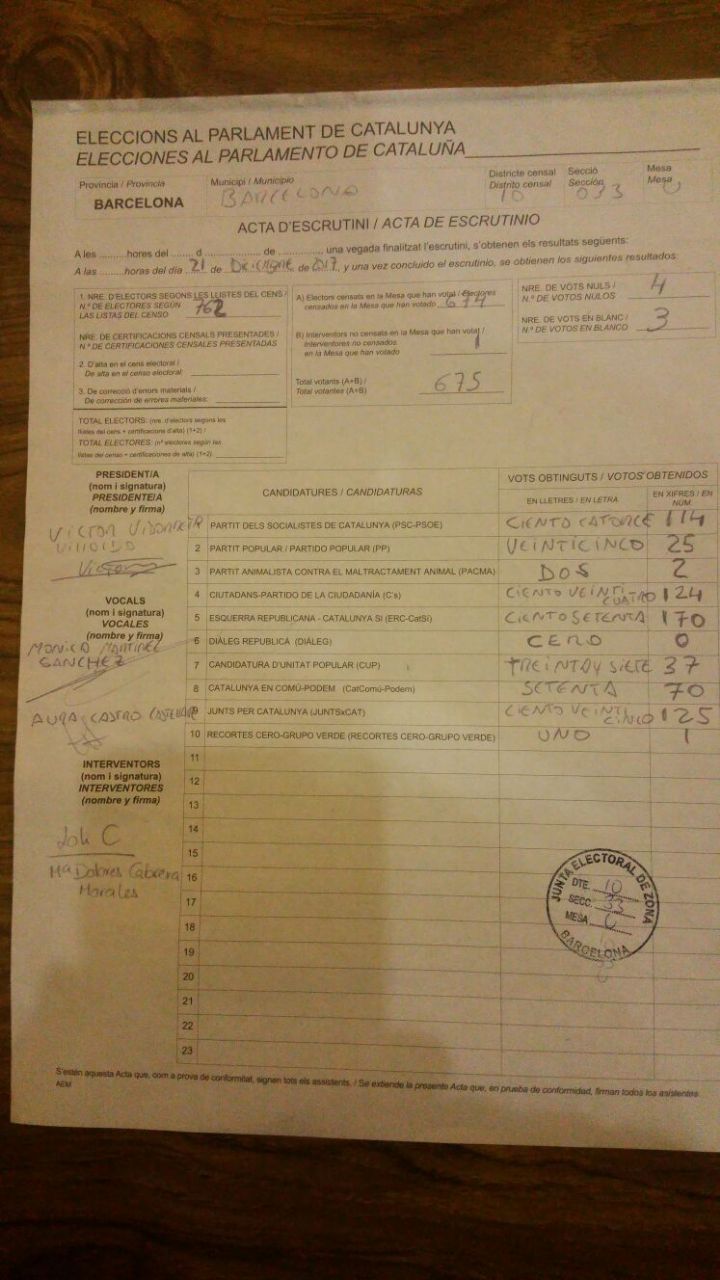 ELECCIONS AL PARLAMENT DE CATALUNYA
ELECCIONES AL PARLAMENTO DE CATALUÑA
Província / Provincia
BARCELONA
Municipi / Municipio
BARCELONA
Districte censal
Distrito censal
10
Secció
Sección
033
Mesa
Mesa
U
ACTA D'ESCRUTINI / ACTA DE ESCRUTINIO
A les ..........hores del ....... d ..................... de .............., una vegada finalitzat l'escrutini, s'obtenen els resultats següents:
A las ........horas del día 21 de DICIEMBRE de 2017, y una vez concluido el escrutinio, se obtienen los siguientes resultados:
1. NRE. D'ELECTORS SEGONS LES LLISTES DEL CENS /
N.º DE ELECTORES SEGÚN
LAS LISTAS DEL CENSO 762
NRE. DE CERTIFICACIONS CENSALS PRESENTADES /
N.º DE CERTIFICACIONES CENSALES PRESENTADAS
2. D'alta en el cens electoral /
De alta en el censo electoral:
3. De correcció d'errors materials /
De corrección de errores materiales:
TOTAL ELECTORS: (nre. d'electors segons les
llistes del cens + certificacions d'alta) (1+2) /
TOTAL ELECTORES: (nº electores según las
listas del censo + certificaciones de alta) (1+2)
A) Electors censats en la Mesa que han votat / Electores
censados en la Mesa que han votado 674
B) Interventors no censats en la Mesa que han votat /
Interventores no censados
en la Mesa que han votado 1
Total votants (A+B) /
Total votantes (A+B) 675
NRE. DE VOTS NULS /
N.º DE VOTOS NULOS 4
NRE. DE VOTS EN BLANC /
N.º DE VOTOS EN BLANCO 3
PRESIDENT/A
(nom i signatura)
PRESIDENTE/A
(nombre y firma)
VICTOR
VOCALS
(nom i signatura)
VOCALES
(nombre y firma)
MONICA MARTINEZ
SANCHEZ
AURA CASTRO
INTERVENTORS
(nom i signatura)
INTERVENTORES
(nombre y firma)
Mª Dolores Cabrera
Morales
CANDIDATURES / CANDIDATURAS
VOTS OBTINGUTS / VOTOS OBTENIDOS
EN LLETRES / EN LETRA
EN XIFRES / EN NÚM.
PARTIT DELS SOCIALISTES DE CATALUNYA (PSC-PSOE) CIENTO CATORCE 114
2 PARTIT POPULAR / PARTIDO POPULAR (PP) VEINTICINCO 25
3 PARTIT ANIMALISTA CONTRA EL MALTRACTAMENT ANIMAL (PACMA) DOS 2
4 CIUTADANS-PARTIDO DE LA CIUDADANÍA (C's) CIENTO VEINTICUATRO 124
5 ESQUERRA REPUBLICANA - CATALUNYA SÍ (ERC-CatSí) CIENTO SETENTA 170
6 DIÀLEG REPUBLICÀ (DIÀLEG) CERO 0
7 CANDIDATURA D'UNITAT POPULAR (CUP) TREINTA Y SIETE 37
8 CATALUNYA EN COMÚ-PODEM (CatComú-Podem) SETENTA 70
9 JUNTS PER CATALUNYA (JUNTSxCAT) CIENTO VEINTICINCO 125
10 RECORTES CERO-GRUPO VERDE (RECORTES CERO-GRUPO VERDE) UNO 1
11
12
13
14
15
16
17
18
19
20
21
22
23
JUNTA ELECTORAL DE ZONA
DTE. 10
SECC. 33
MESA U
BARCELONA
S'estén aquesta Acta que, com a prova de conformitat, signen tots els assistents. / Se extiende la presente Acta que, en prueba de conformidad, firman todos los asistentes.
AEM